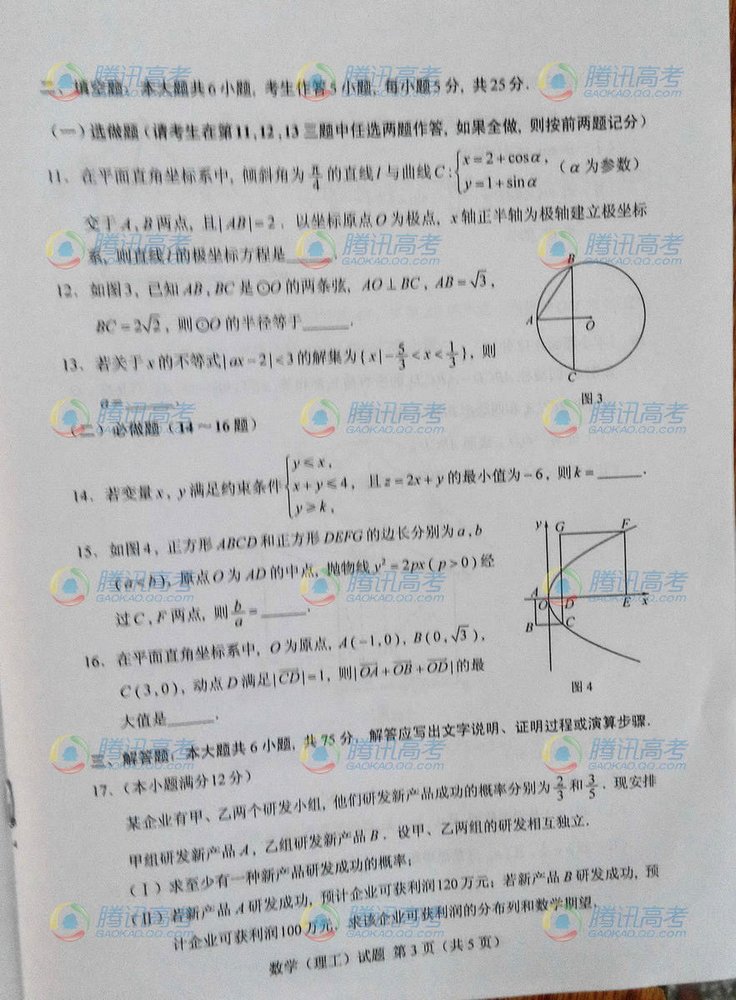 二、填空题：本大题共6小题，考生作答5小题，每小题5分，共25分．
（一）选做题（请考生在第11,12,13三题中任选两题作答，如果全做，则按前两题记分）
11、在平面直角坐标系中，倾斜角为 π/4 的直线 l 与曲线 C：{x=2+cosα， y=1+sinα （α为参数）
交于 A，B 两点，且|AB|=2．以坐标原点 O 为极点，x 轴正半轴为极轴建立极坐标
系，则直线 l 的极坐标方程是______．
12、如图3，已知 AB，BC 是⊙O 的两条弦，AO⊥BC，AB=√3，
BC=2√2，则⊙O 的半径等于______．
B
A
O
C
图3
13、若关于 x 的不等式|ax-2|<3的解集为{x|-5/3<x<1/3}，则
a=______．
（二）必做题（14～16题）
14、若变量 x，y 满足约束条件{y≤x， x+y≤4， y≥k， 且 z=2x+y 的最小值为-6，则 k=______．
15、如图4，正方形 ABCD 和正方形 DEFG 的边长分别为 a,b
(a<b)，原点 O 为 AD 的中点，抛物线 y²=2px(p>0)经
过 C，F 两点，则 b/a=______．
y G F
A O D E x
B C
图4
16、在平面直角坐标系中，O 为原点，A(-1,0)，B(0,√3)，
C(3,0)，动点 D 满足|CD|=1，则|OA+OB+OD|的最
大值是______．
三、解答题：本大题共6小题，共75分．解答应写出文字说明、证明过程或演算步骤．
17、（本小题满分12分）
某企业有甲、乙两个研发小组，他们研发新产品成功的概率分别为 2/3 和 3/5．现安排
甲组研发新产品 A，乙组研发新产品 B．设甲、乙两组的研发相互独立．
（Ⅰ）求至少有一种新产品研发成功的概率；
（Ⅱ）若新产品 A 研发成功，预计企业可获利润120万元；若新产品 B 研发成功，预
计企业可获利润100万元．求该企业可获利润的分布列和数学期望．
数学（理工）试题 第3页（共5页）
腾讯高考
GAOKAO.QQ.com